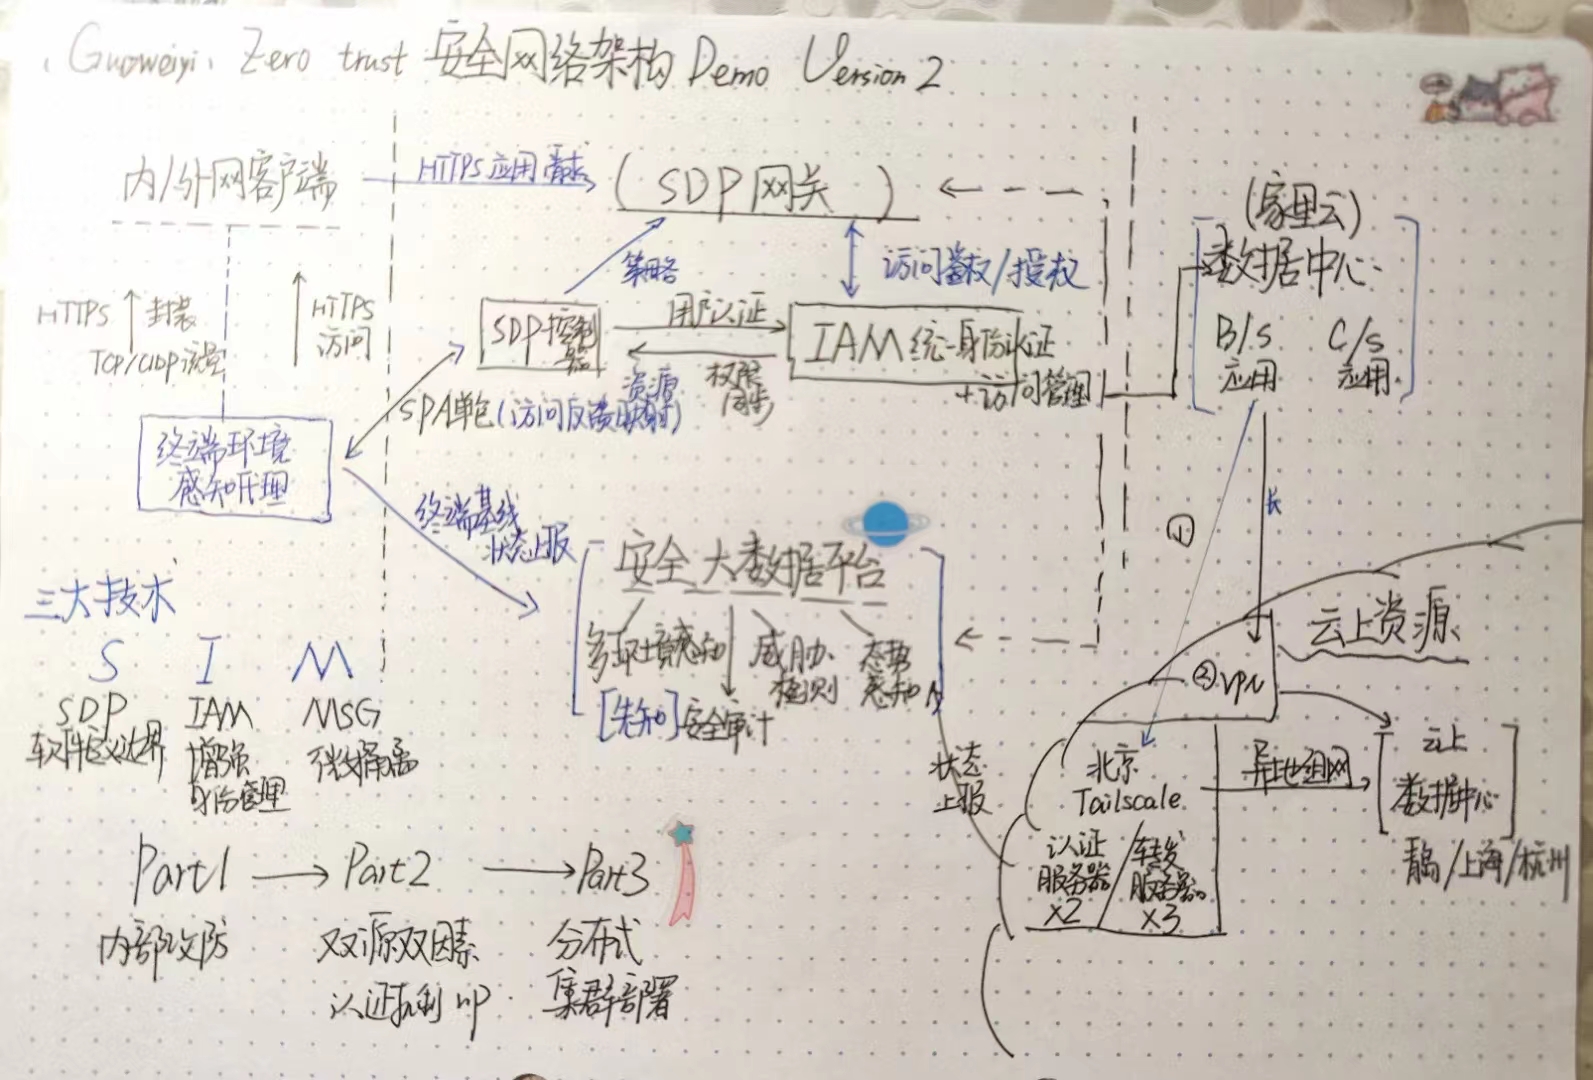 Guoweiyi. Zero trust 安全网络架构 Demo Version 2
内/外网客户端
HTTPS应用
(SDP网关)
(家里云)
数据中心
B/S
应用
C/S
应用
策略
访问鉴权/授权
HTTPS
封装
TCP/UDP流量
HTTPS
访问
SDP控制
器
用户认证
资源
权限
同步
IAM统一身份认证
+访问管理
SPA单包(访问反馈
终端环境
感知代理
终端基线
状态上报
安全大数据平台
多环境感知
威胁
检测
态势
感知
[先知]安全审计
三大技术
S I M
SDP
软件定义边界
IAM
增强
身份管理
MSG
微隔离
Part1 → Part2 → Part3
内部攻防
双源双因素
认证
分布式
集群部署
①
云上资源
②VPN
状态
上报
北京
Tailscale
认证
服务器
×2
转发
服务器
×3
异地组网
云上
数据中心
青岛/上海/杭州